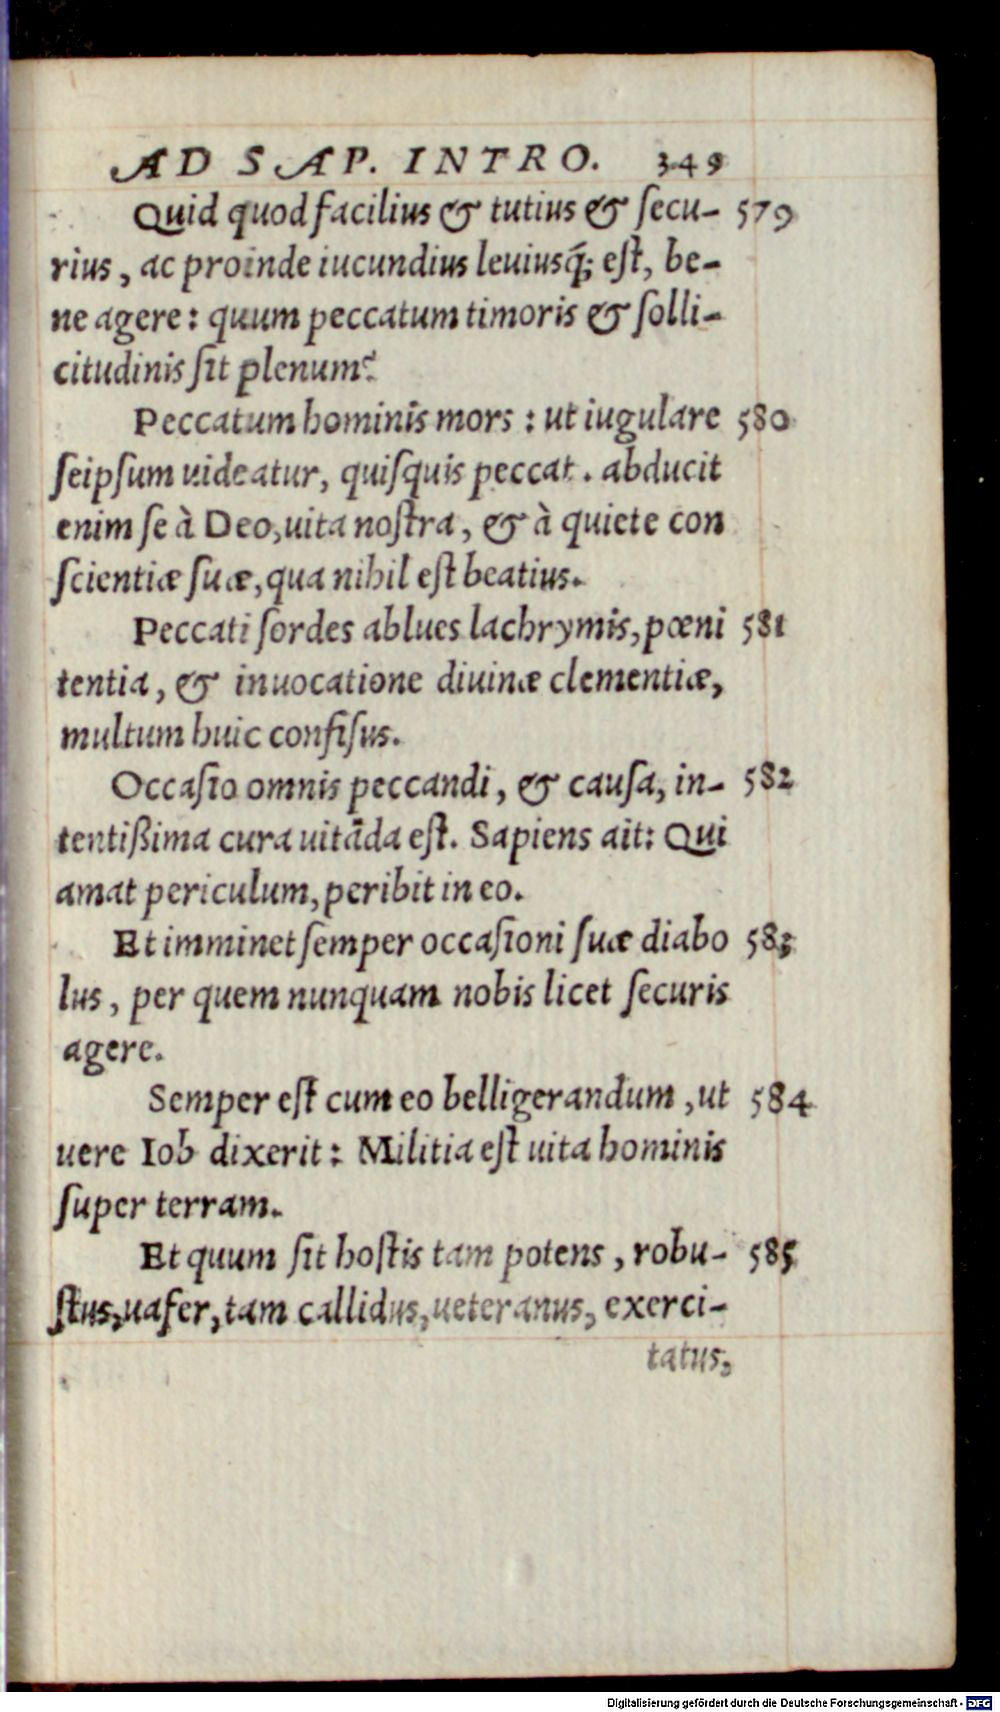 AD SAP. INTRO. 349
Quid quod facilius & tutius & ſecu- 579
rius, ac proinde iucundius leuiusq́; eſt, be-
ne agere: quum peccatum timoris & ſolli-
citudinis ſit plenum?
Peccatum hominis mors: ut iugulare 580
ſeipſum uideatur, quiſquis peccat. abducit
enim ſe à Deo, uita noſtra, & à quiete con
ſcientiæ ſuæ, qua nihil eſt beatius.
Peccati ſordes ablues lachrymis, pœni 581
tentia, & inuocatione diuinæ clementiæ,
multum huic confiſus.
Occaſio omnis peccandi, & cauſa, in- 582
tentißima cura uitãda eſt. Sapiens ait: Qui
amat periculum, peribit in eo.
Et imminet ſemper occaſioni ſuæ diabo 583
lus, per quem nunquam nobis licet ſecuris
agere.
Semper eſt cum eo belligerandum, ut 584
uere Iob dixerit: Militia eſt uita hominis
ſuper terram.
Et quum ſit hoſtis tam potens, robu- 585
ſtus, uafer, tam callidus, ueteranus, exerci-
tatus,
Digitalisierung gefördert durch die Deutsche Forschungsgemeinschaft - DFG